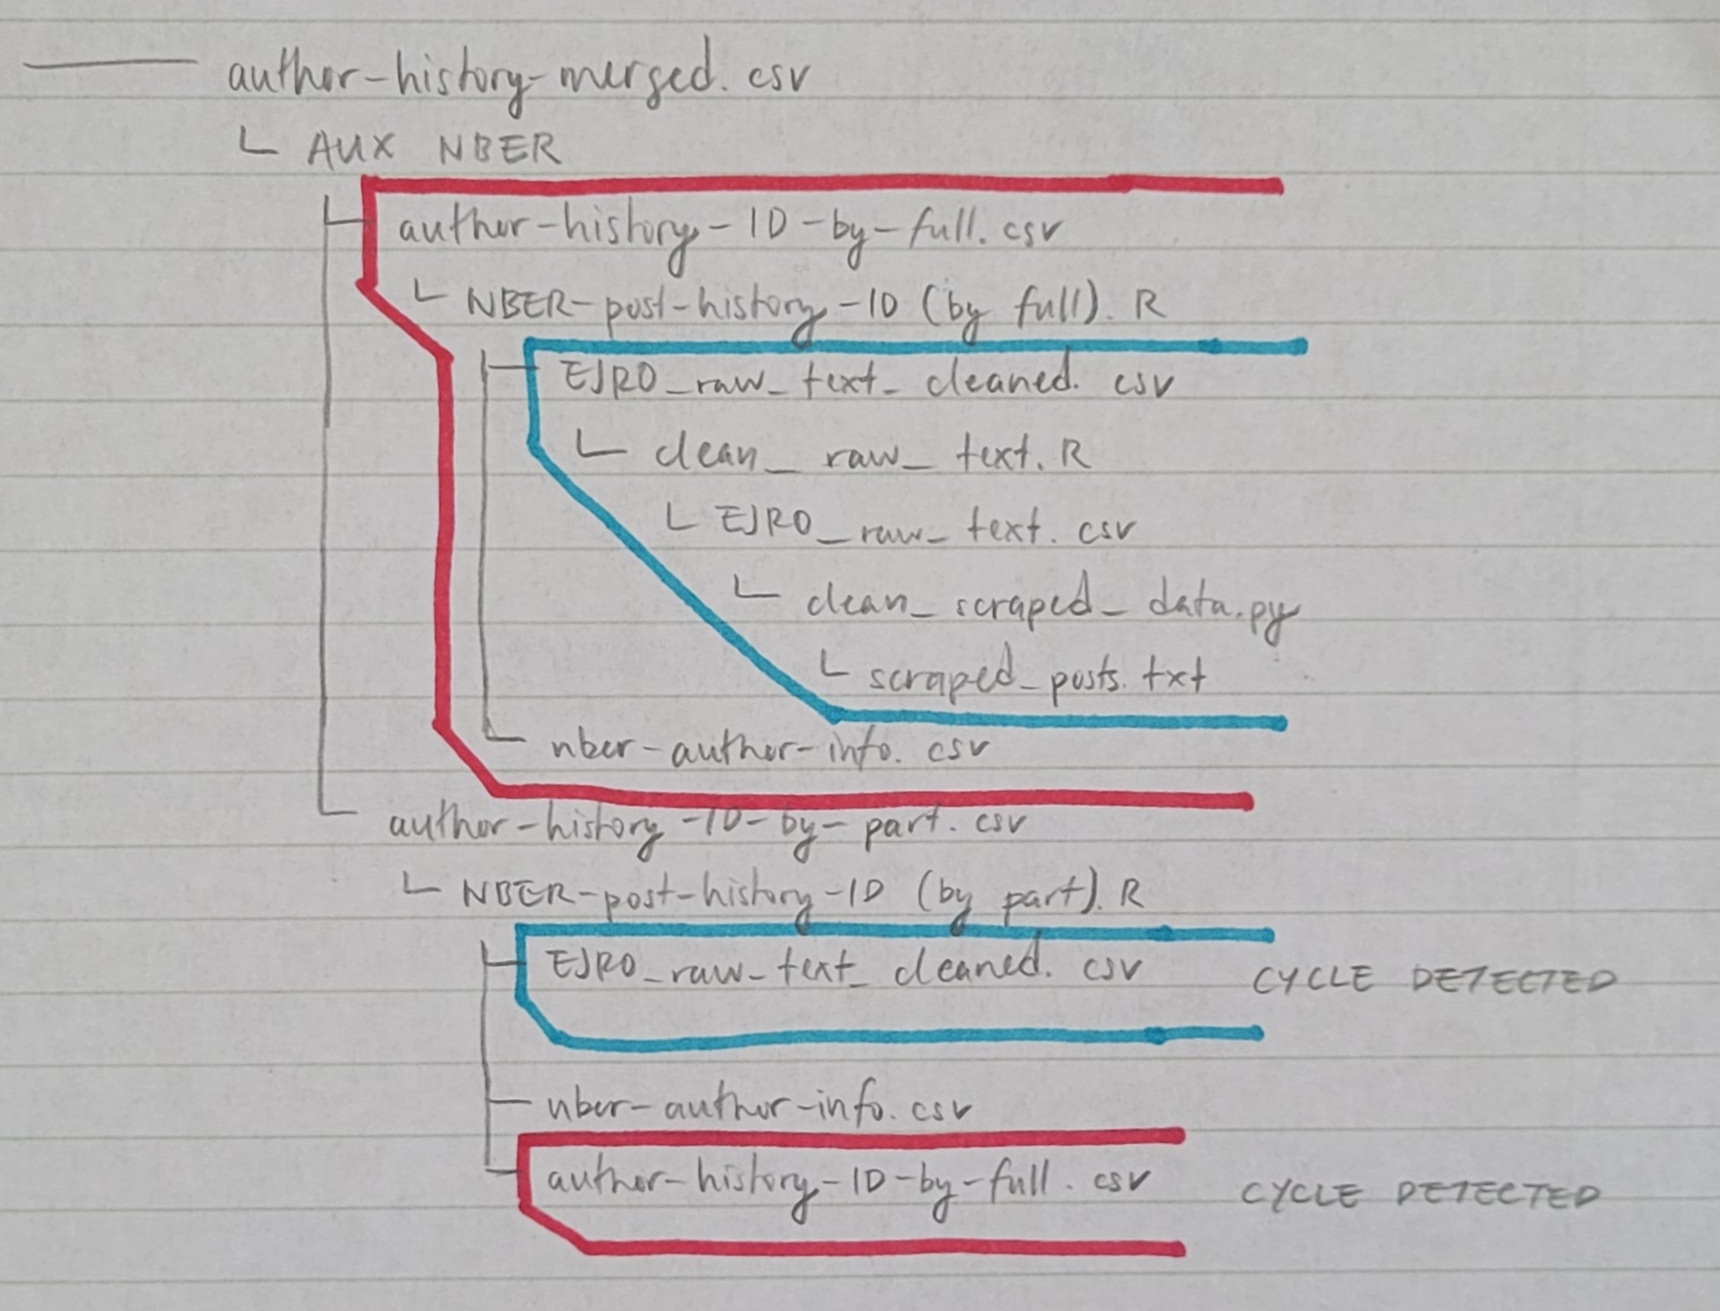 author-history-merged.csv
AUX NBER
author-history-ID-by-full.csv
NBER-post-history-ID (by full).R
EJRO_raw_text_cleaned.csv
clean_raw_text.R
EJRO_raw_text.csv
clean_scraped_data.py
scraped_posts.txt
nber-author-info.csv
author-history-ID-by-part.csv
NBER-post-history-ID (by part).R
EJRO_raw_text_cleaned.csv CYCLE DETECTED
nber-author-info.csv
author-history-ID-by-full.csv CYCLE DETECTED